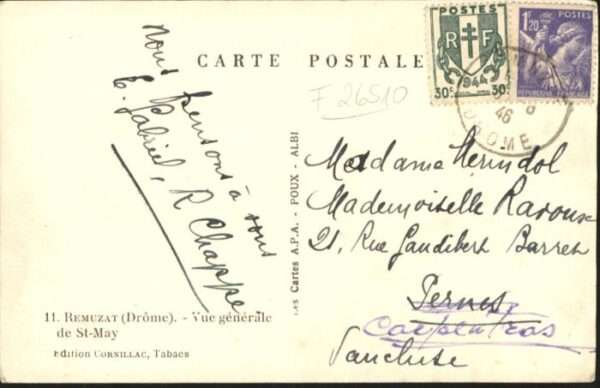 CARTE POSTALE
POSTES
RF
1944
30c 30c
1F20 POSTES
46
DROME
F 26510
Nous pensons à vous
E. Gabriel, R Chappe
Les Cartes A.P.A. - POUX - ALBI
Madame Merindol
Mademoiselle Ravoux
21, Rue Gaudibert Barret
Pernes
Carpentras
Vaucluse
11. REMUZAT (Drôme). - Vue générale
de St-May
Edition CORNILLAC, Tabacs